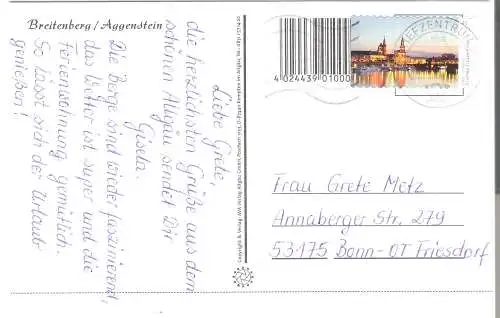 Breitenberg / Aggenstein
Liebe Grete,
die herzlichsten Grüße aus dem
schönen Allgäu sendet Dir
Gisela.
Die Berge sind wieder faszinierend,
das Wetter ist super und die
Ferienwohnung gemütlich.
So lässt sich der Urlaub
genießen!
4 024439 01000
EFZENTRUM
Frau Grete Metz
Annaberger Str. 279
53175 Bonn-OT Friesdorf